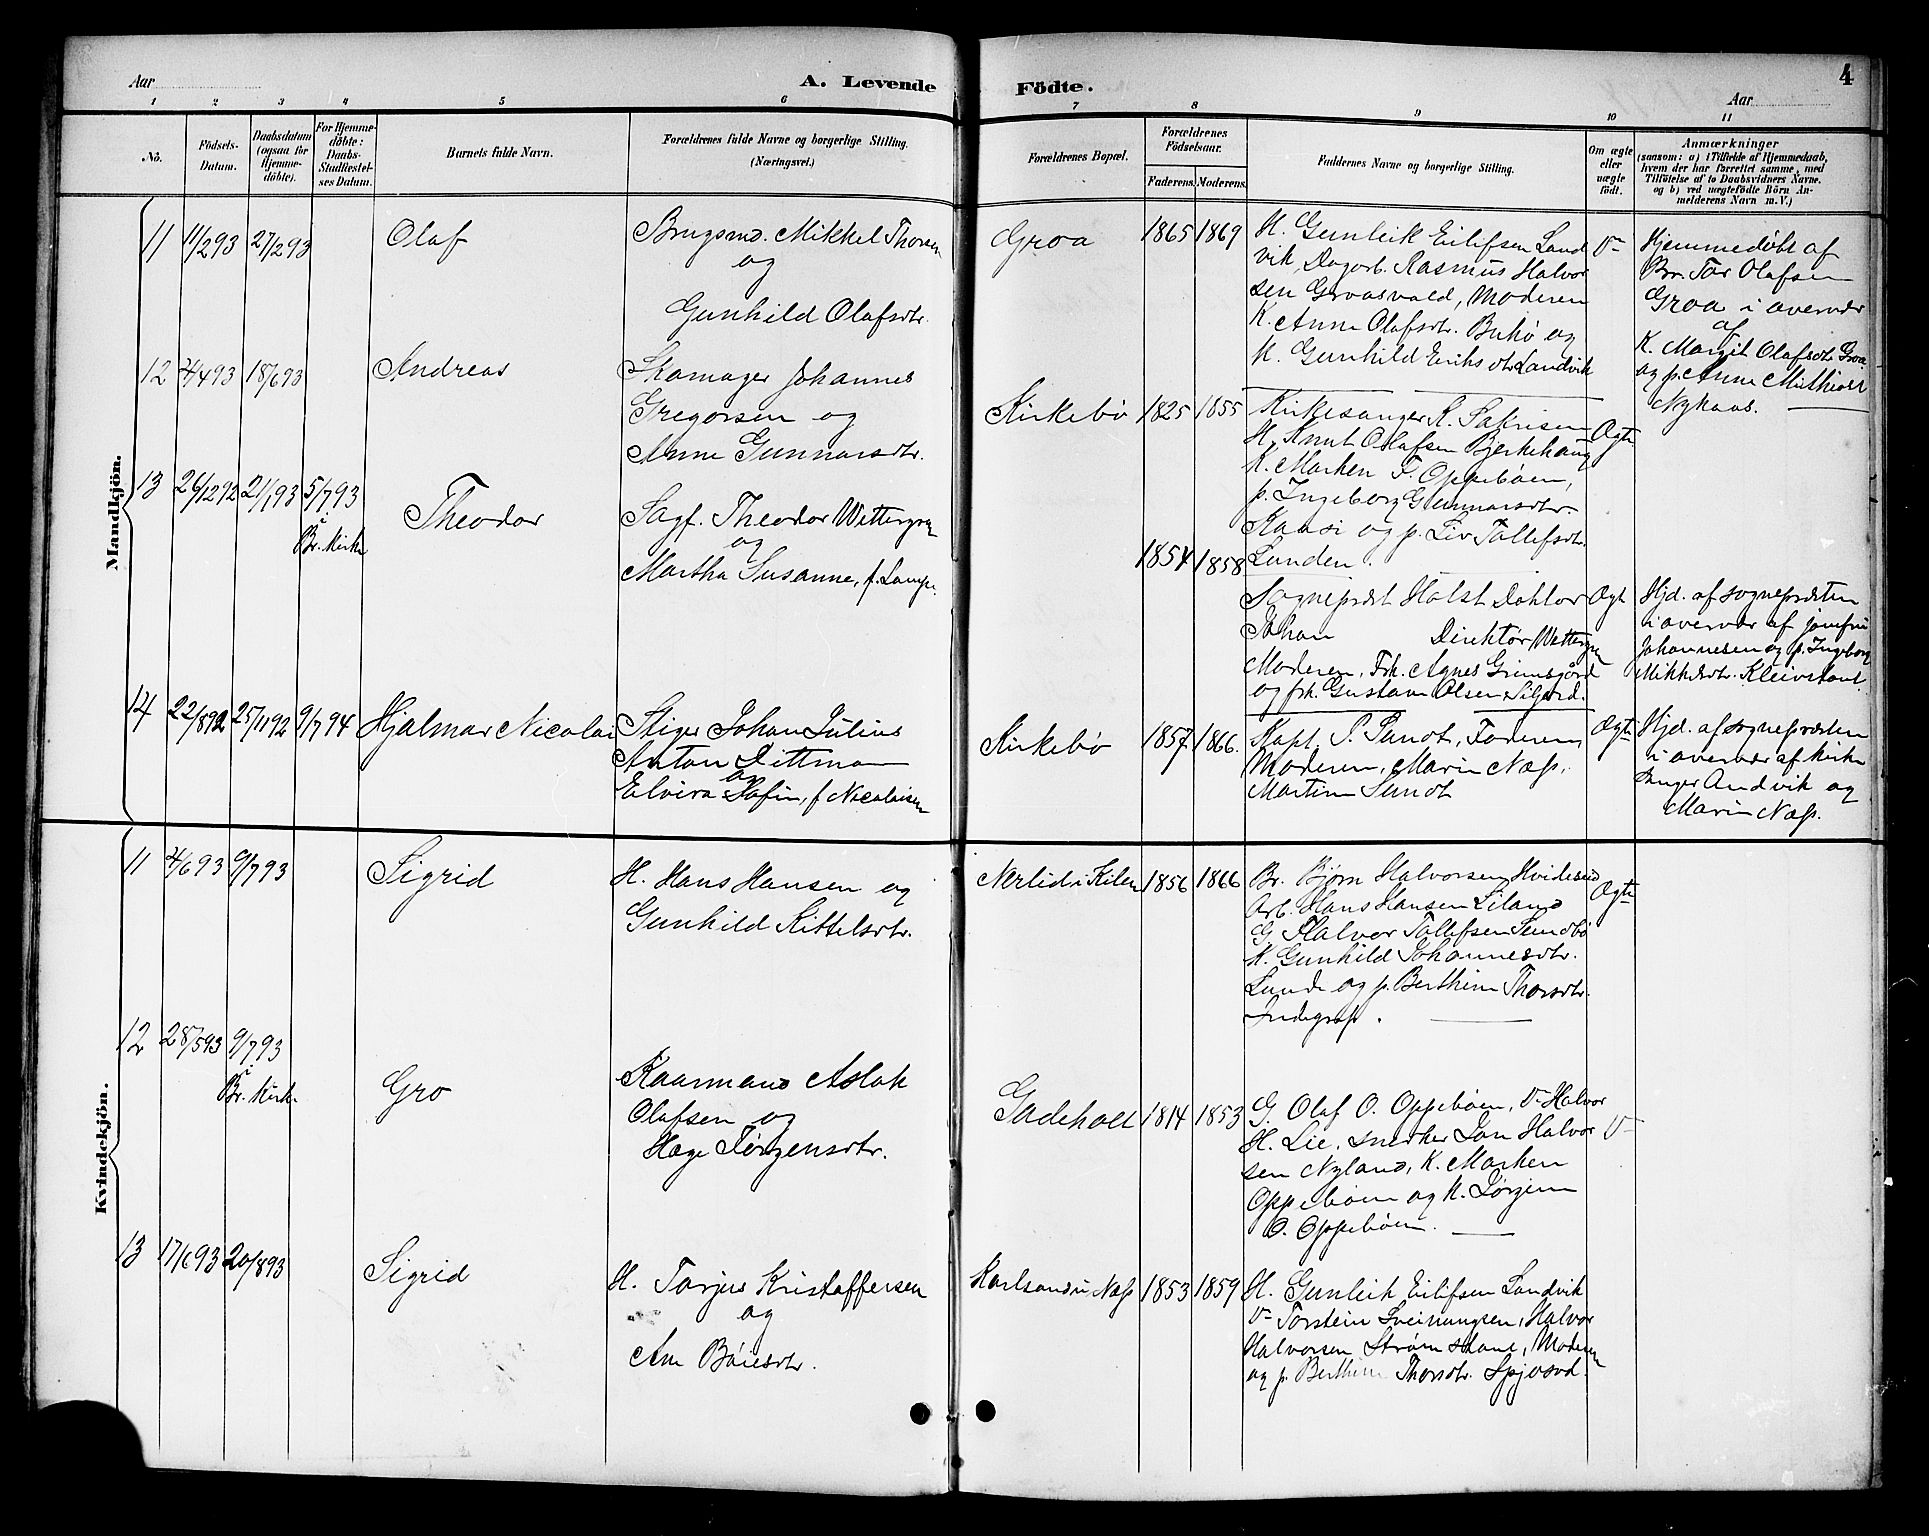 Aar
A. Levende
Födte.
Aar
4
1 2 3 4 5 6 7 8 9 10 11
No.
Födsels-
Datum.
Daabsdatum
(ogsaa for
Hjemme-
döbte).
For Hjemme-
döbte:
Daabs-
Stadfæstel-
ses Datum.
Barnets fulde Navn.
Forældrenes fulde Navne og borgerlige Stilling.
(Næringsvei.)
Forældrenes Bopæl.
Forældrenes
Födselsaar.
Faderens.
Moderens.
Faddernes Navne og borgerlige Stilling.
Om ægte
eller
uægte
født.
Anmærkninger
(saasom: a) i Tilfælde af Hjemmedaab,
hvem der har forrettet samme, med
Tilföielse af to Daabsvidners Navne.
og b) ved uægtefödte Börn An-
melderens Navn m. V.)
Mandkjön.
11
11/2 93
27/2 93
Olaf
Brugsmd. Mikkel Thorsen
og
Gunhild Olafsdtr.
Groa
1865
1869
H. Gunleik Eilifsen Land
vik, Dagarb. Rasmus Halvor
sen Groasvald, Moderen
K. Anne Olafsdtr. Buhø og
K. Gunhild Eriks dtr Landvik
V-
Hjemmedøbt af
Br. Tor Olafsen
Groa i overvær
af
K. Margit Olafsdtr Groa
og p. Anne
Nykaas.
12
4/4 93
18/6 93
Andreas
Skomager Johannes
Gregorsen og
Anne Gunnarsdtr.
Kirkebø
1825
1855
Kirkesanger K. Sakrisen
H. Knut Olafsen Bjerkehaug
K. Marken T. Oppebøen,
p. Ingeborg Gunnarsdtr.
Kaasi og p. Liv Tollefsdtr.
Lunden.
Ægte
13
26/12 92
21/1 93
5/7 93
i
Br. Kirke
Theodor
Sagf. Theodor Wettergren
og
Martha Susanne, f. Lampe.
1854
1858
Sogneprest Holst Doktor
Johan Direktør Wettergren
Moderen, Frk. Agnes Grimsgård
og frk. Gustava Olsen
Ægt
Hjd. af sognepresten
i overvær af jomfru
Johannesen og p. Ingeborg
Mikkelsdtr. Kleivstaul.
14
22/8 92
25/11 92
9/7 94
Hjalmar Nicolai
Stiger Johan Julius
Anton Dittman
og
Elvira Hofin, f Nicolaisen
Kirkebø
1857.
1866.
Kapt. S. Sundt, Faderen,
Moderen, Marin Næss,
Martin Sundt
Ægte
Hjd. af sognepresten
i overvær af Kirke
sanger Andvik og
Marin Næss.
Kvindekjön.
11
4/6 93
9/7 93
Sigrid
H. Hans Hansen og
Gunhild Kittelsdtr.
Nerlid i Kilen
1856
1866
Br. Bjørn Halvorsen Hvideseid
Arb. Hans Hansen Liland
G Halvor Tollefsen Sundbø
K. Gunhild Johannesdtr.
Lunde og p. Berthine Thorsdtr.
Indegræs.
Ægte
12
28/5 93
9/7 93
i
Br. Kirke
Gro
Kaarmand Aslak
Olafsen og
Hæge Jørgensdtr.
Gadeholt
1814
1853
G. Olaf O. Oppebøen, V- Halvor
H. Lie, snedker Jon Halvor
sen Nyland, K. Marken
Oppebøen og K. Jørgine
O. Oppebøen.
V-
13
17/6 93
20/8 93
Sigrid
H. Torjus Kristoffersen
og
Ane Bøiesdtr.
Karlsand u. Næss
1853
1859
H. Gunleik Eilifsen Landvik
V- Torstein Sveinungsen, Halvor
Halvorsen Strømstaul, Moderen
og p. Berthine Thorsdtr. Spjosvd.